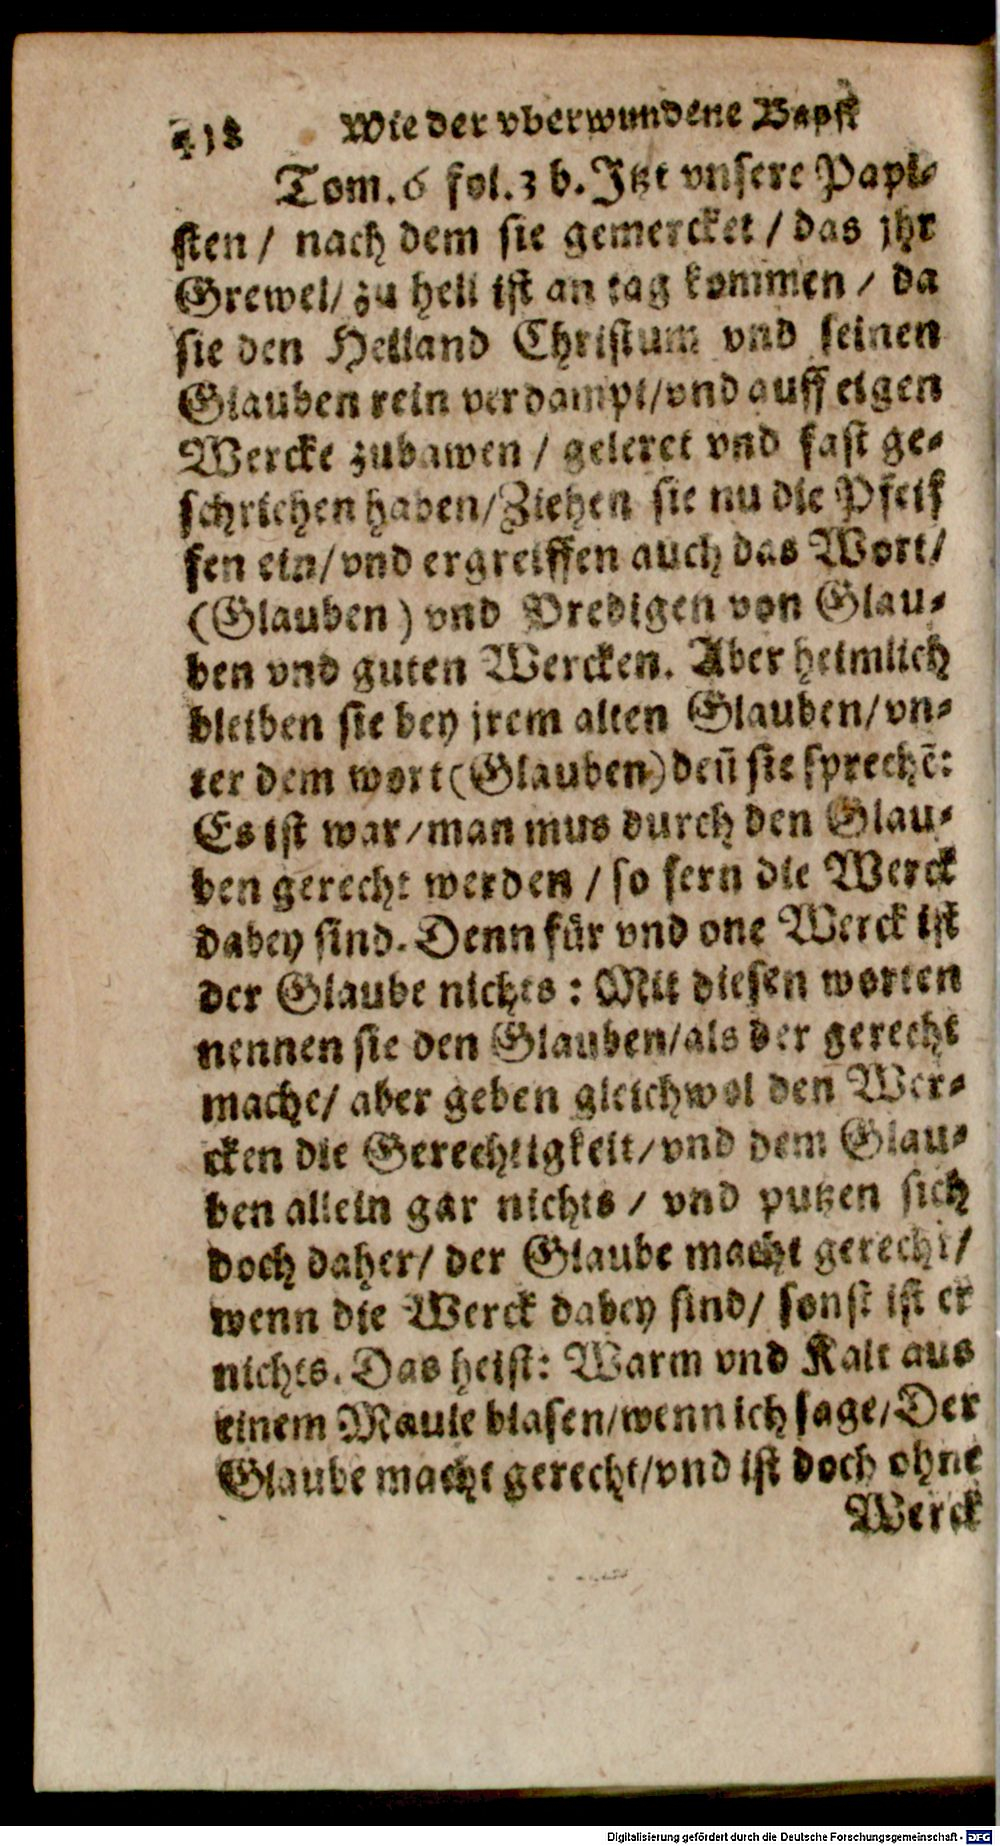 418 Wie der vberwundene Bapst
Tom. 6 fol. 3 b. Jtzt vnsere Papi-
sten / nach dem sie gemercket / das jhr
Grewel / zu hell ist an tag kommen / da
sie den Heiland Christum vnd seinen
Glauben rein verdampt / vnd auff eigen
Wercke zubawen / geleret vnd fast ge-
schriehen haben / Ziehen sie nu die Pfeif
fen ein / vnd ergreiffen auch das Wort /
(Glauben) vnd Predigen von Glau-
ben vnd guten Wercken. Aber heimlich
bleiben sie bey jrem alten Glauben / vn-
ter dem wort (Glauben) deñ sie sprechẽ:
Es ist war / man mus durch den Glau-
ben gerecht werden / so fern die Werck
dabey sind. Denn für vnd one Werck ist
der Glaube nichts: Mit diesen worten
nennen sie den Glauben / als der gerecht
mache / aber geben gleichwol den Wer-
cken die Gerechtigkeit / vnd dem Glau-
ben allein gar nichts / vnd putzen sich
doch daher / der Glaube macht gerecht /
wenn die Werck dabey sind / sonst ist er
nichts. Das heist: Warm vnd Kalt aus
einem Maule blasen / wenn ich sage / Der
Glaube macht gerecht / vnd ist doch ohne
Werck
Digitalisierung gefördert durch die Deutsche Forschungsgemeinschaft - DFG